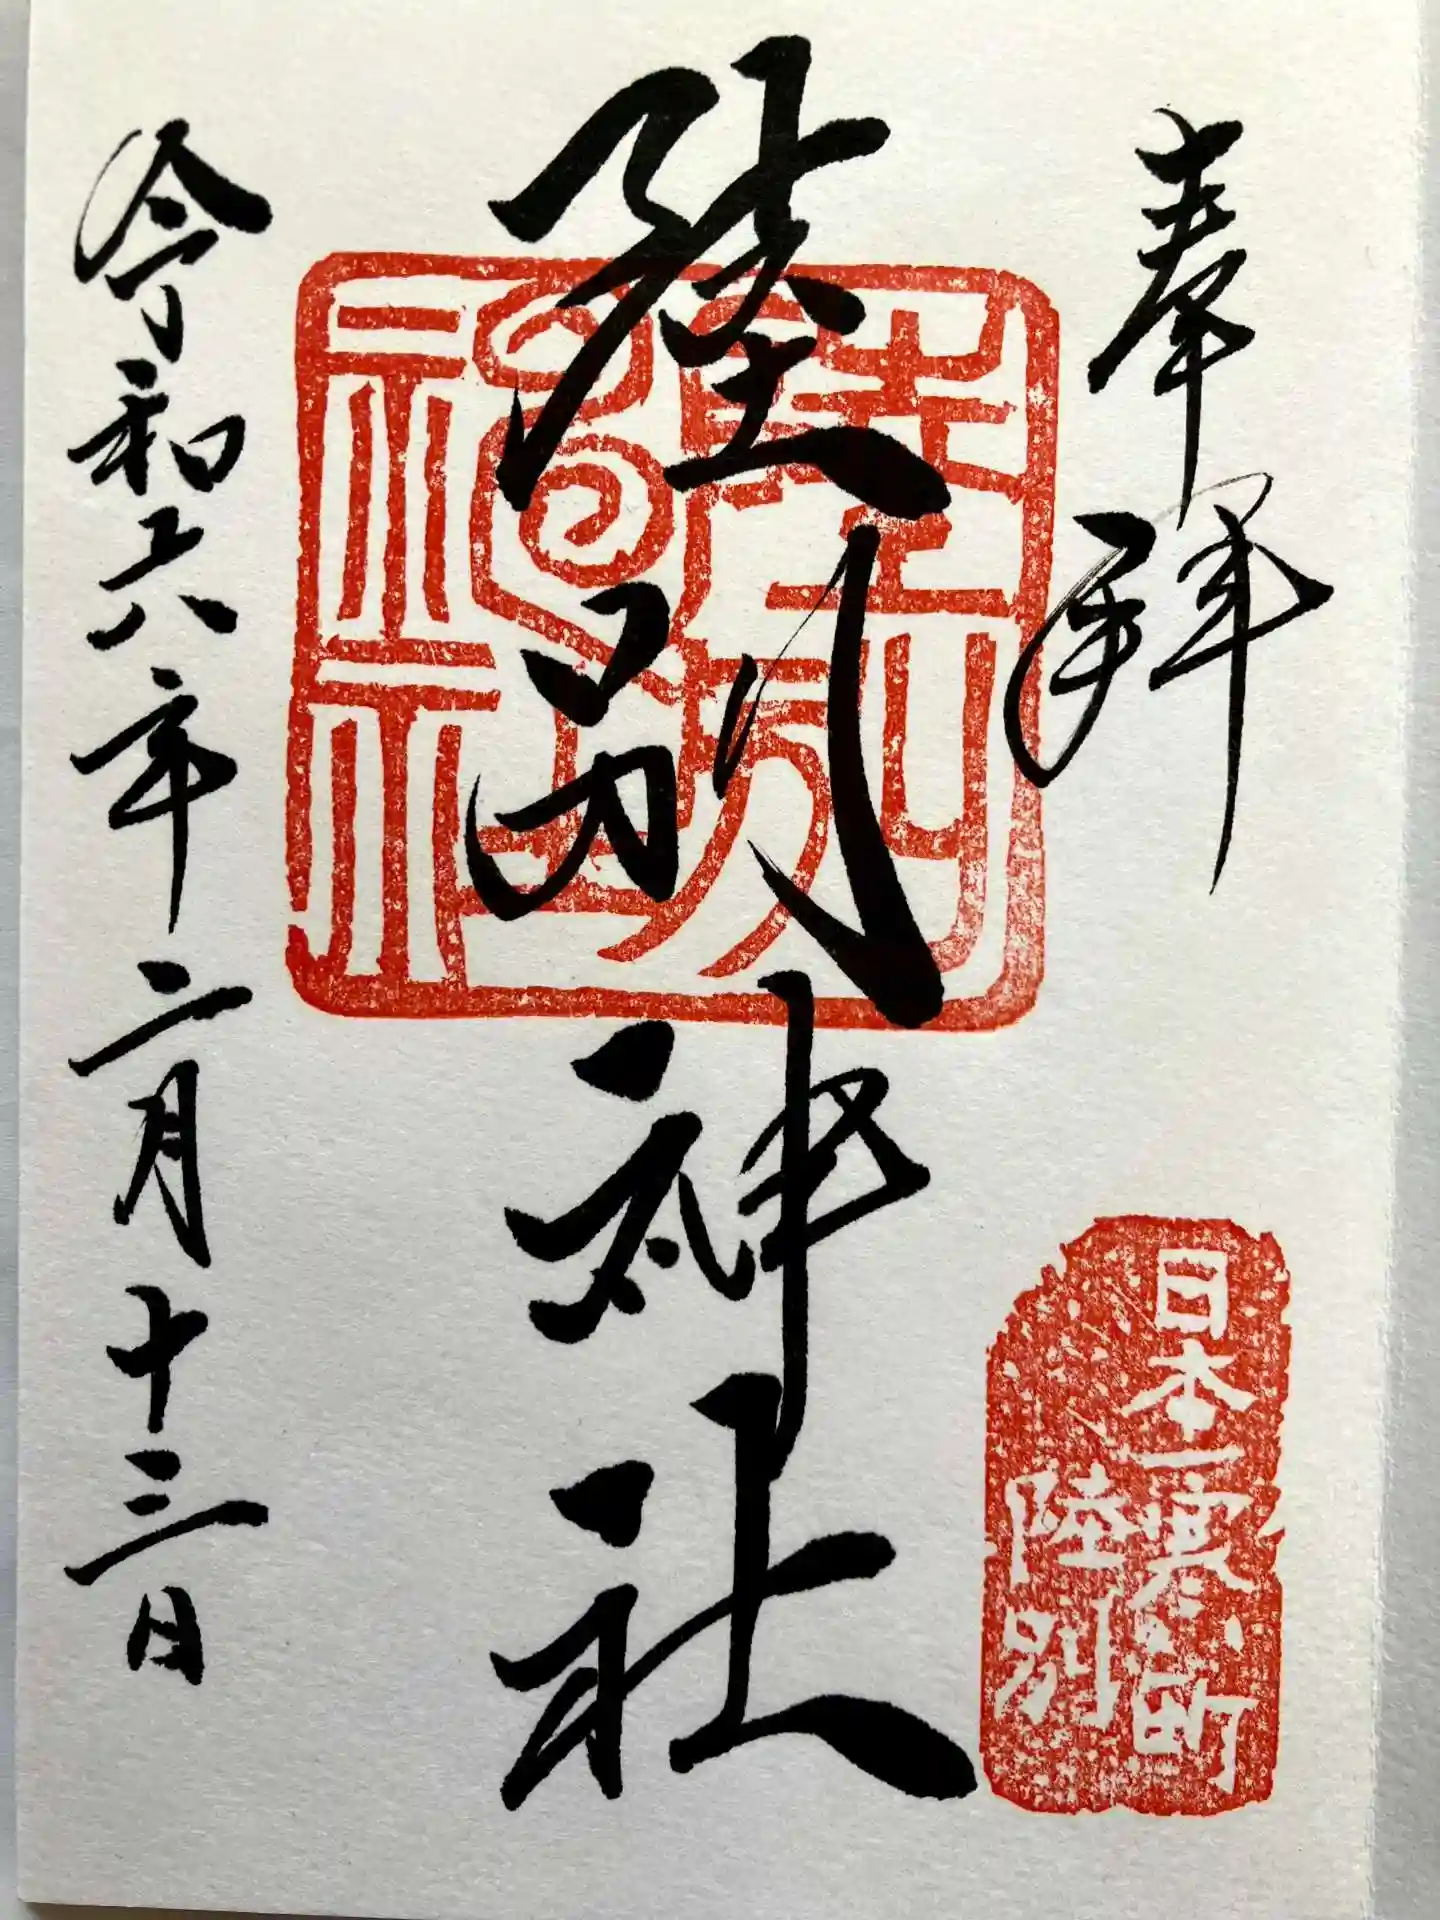 奉拝
日本一寒い町
陸別
陸別神社
陸別
神社
令和六年二月十三日